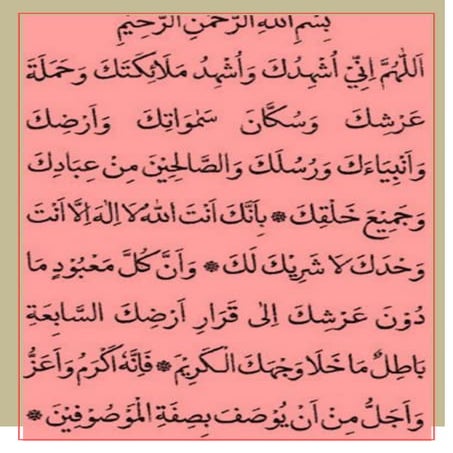 بِسْمِ اللّٰهِ الرَّحْمٰنِ الرَّحِيْمِ
اَللّٰهُمَّ اِنِّيْ اُشْهِدُكَ وَاُشْهِدُ مَلَائِكَتَكَ وَحَمَلَةَ
عَرْشِكَ وَسُكَّانَ سَمٰوَاتِكَ وَاَرْضِكَ
وَاَنْبِيَاءَكَ وَرُسُلَكَ وَالصَّالِحِيْنَ مِنْ عِبَادِكَ
وَجَمِيْعَ خَلْقِكَ ❋ بِاَنَّكَ اَنْتَ اللّٰهُ لَا اِلٰهَ اِلَّا اَنْتَ
وَحْدَكَ لَا شَرِيْكَ لَكَ ❋ وَاَنَّ كُلَّ مَعْبُوْدٍ مَا
دُوْنَ عَرْشِكَ اِلٰى قَرَارِ اَرْضِكَ السَّابِعَةِ
بَاطِلٌ مَا خَلَا وَجْهَكَ الْكَرِيْمَ ❋ فَاِنَّهُ اَكْرَمُ وَاَعَزُّ
وَاَجَلُّ مِنْ اَنْ يُوْصَفَ بِصِفَةِ الْمَوْصُوْفِيْنَ ❋